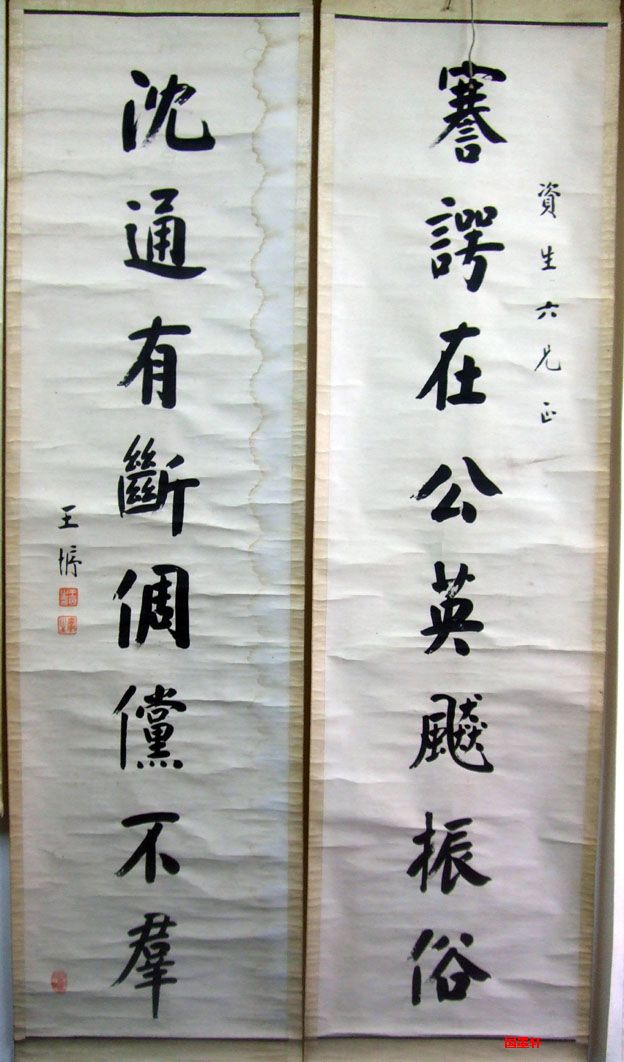 資生六兄正
謇諤在公英飈振俗
沈通有斷倜儻不羣
王
国墨轩